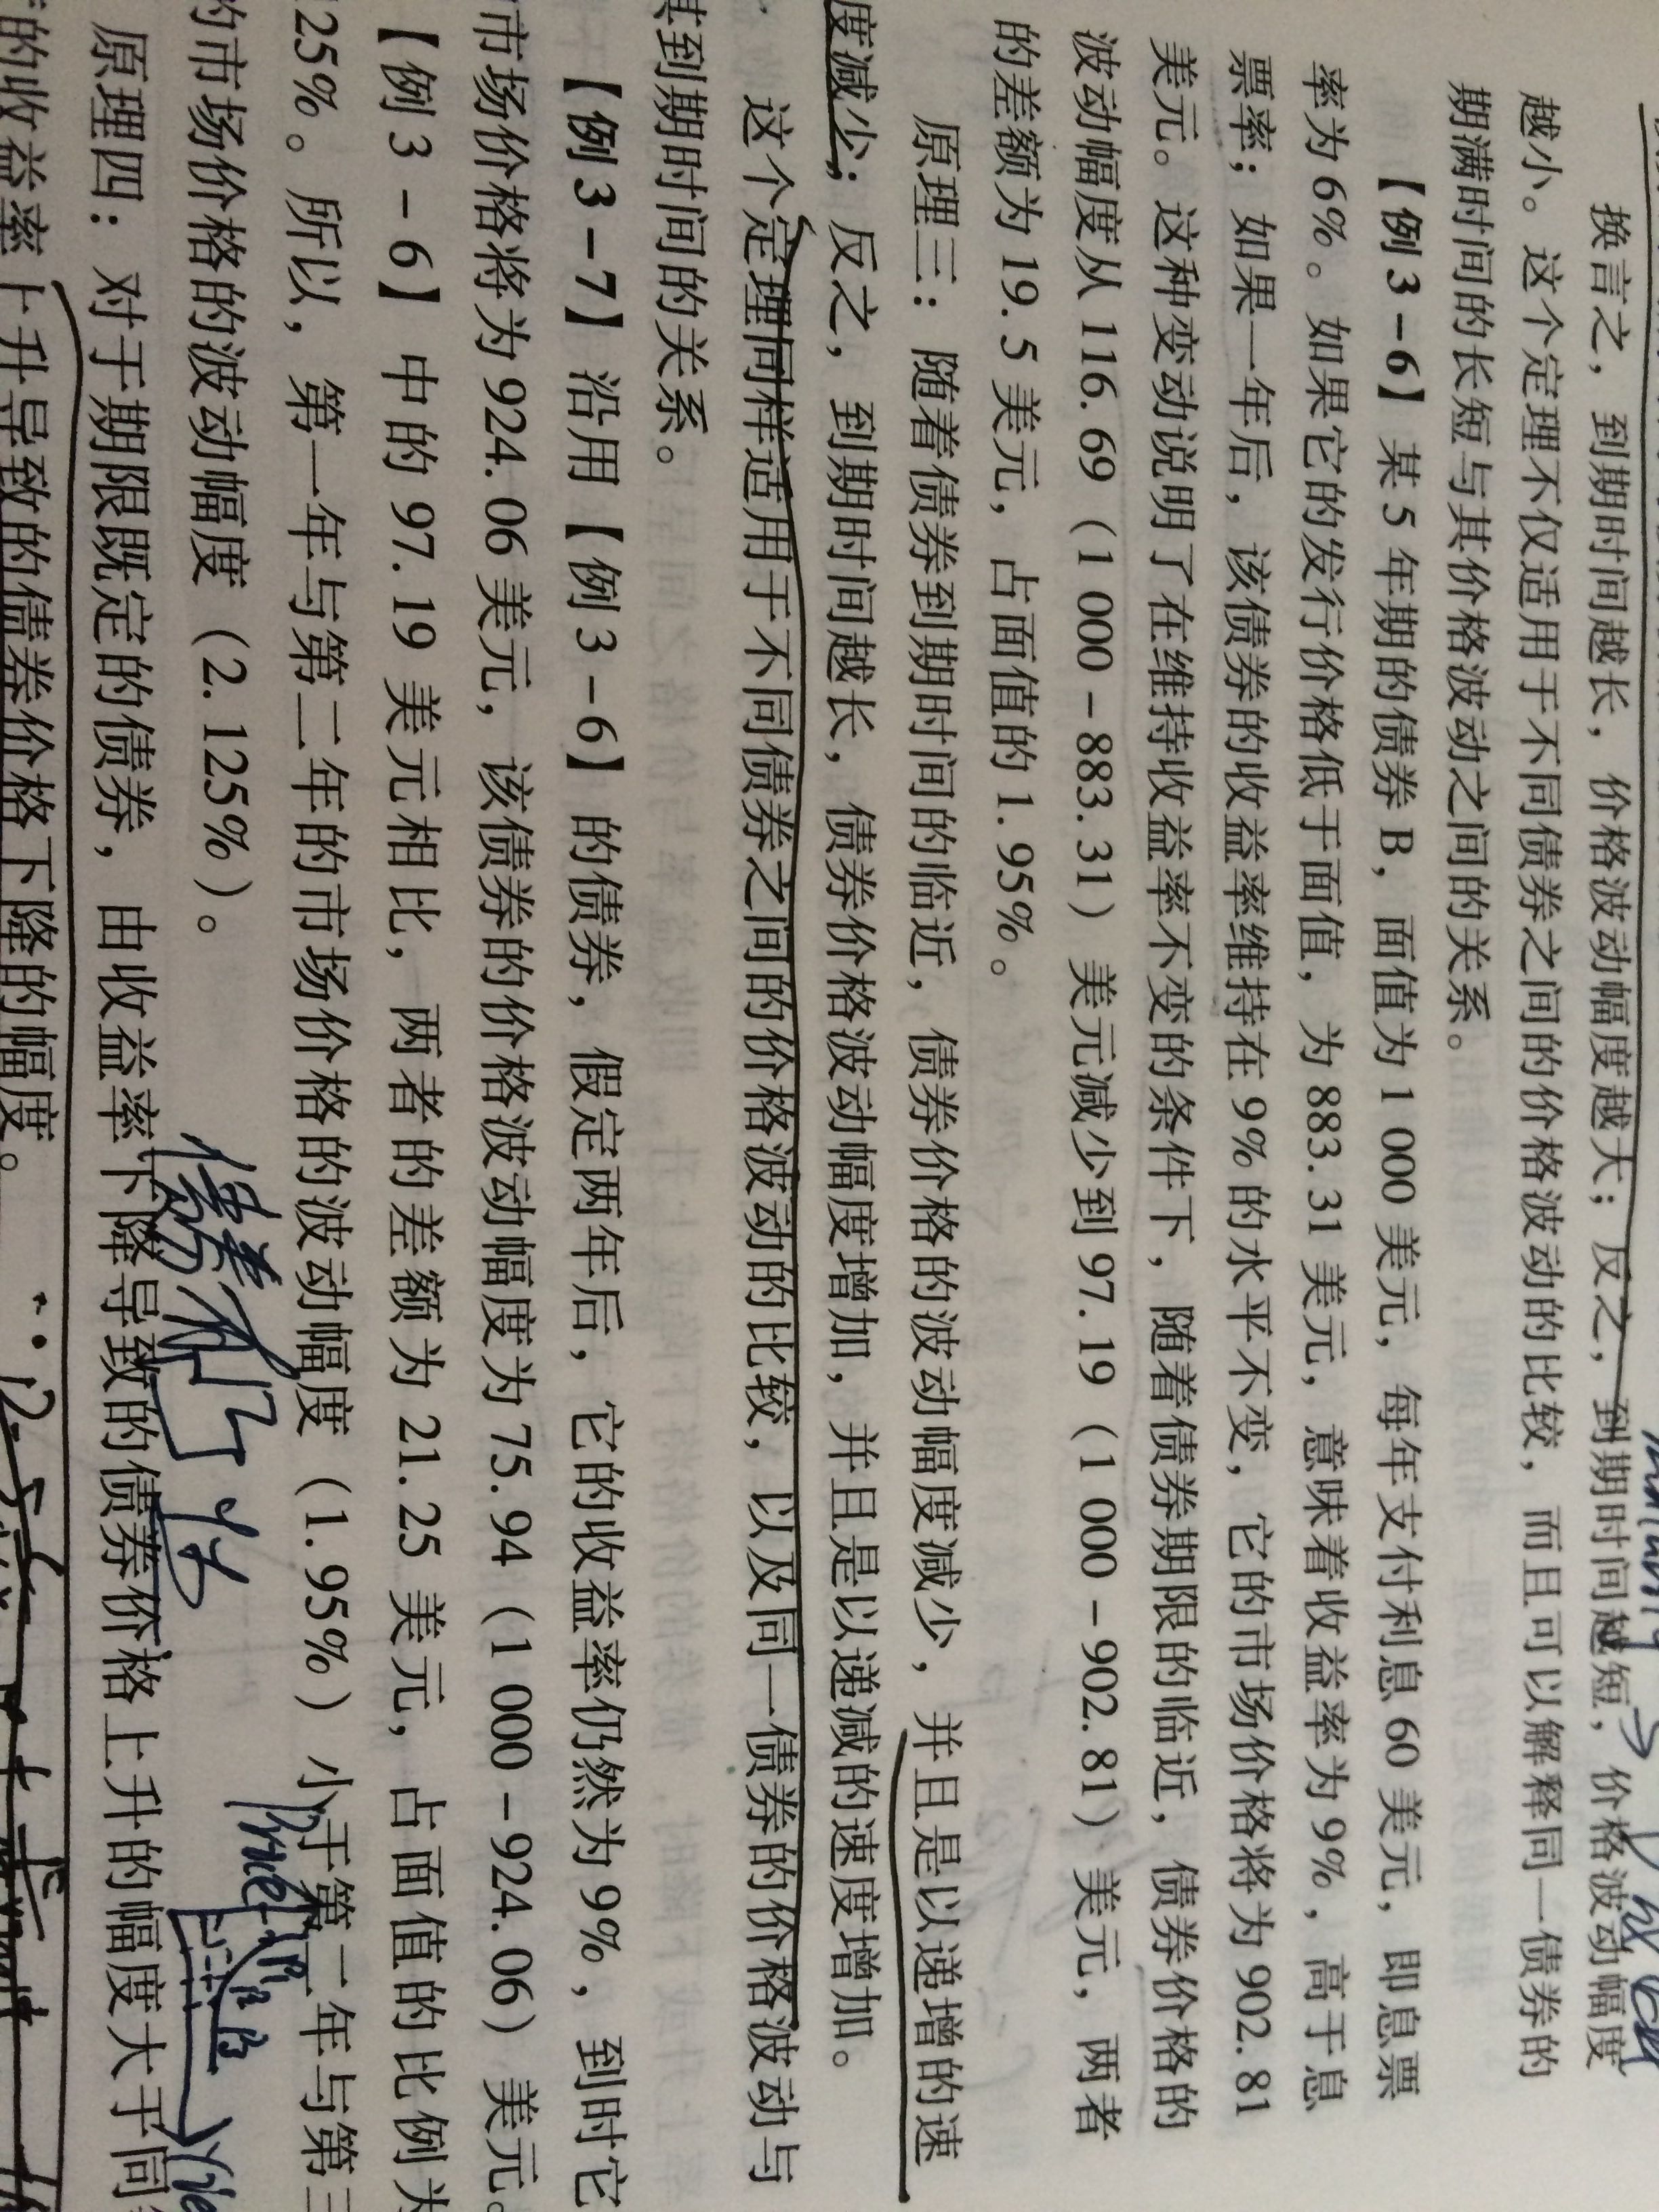 换言之，到期时间越长，价格波动幅度越大；反之，到期时间越短，价格波动幅度
越小。这个定理不仅适用于不同债券之间的价格波动的比较，而且可以解释同一债券的
期满时间的长短与其价格波动之间的关系。
【例 3－6】某 5 年期的债券 B，面值为 1 000 美元，每年支付利息 60 美元，即息票
率为 6%。如果它的发行价格低于面值，为 883. 31 美元，意味着收益率为 9%，高于息
票率；如果一年后，该债券的收益率维持在 9% 的水平不变，它的市场价格将为 902. 81
美元。这种变动说明了在维持收益率不变的条件下，随着债券期限的临近，债券价格的
波动幅度从 116. 69（1 000－883. 31）美元减少到 97. 19（1 000－902. 81）美元，两者
的差额为 19. 5 美元，占面值的 1. 95%。
原理三：随着债券到期时间的临近，债券价格的波动幅度减少，并且是以递增的速
度减少；反之，到期时间越长，债券价格波动幅度增加，并且是以递减的速度增加。
这个定理同样适用于不同债券之间的价格波动的比较，以及同一债券的价格波动与
其到期时间的关系。
【例 3－7】沿用【例 3－6】的债券，假定两年后，它的收益率仍然为 9%，到时它
市场价格将为 924. 06 美元，该债券的价格波动幅度为 75. 94（1 000－924. 06）美元。
【例 3－6】中的 97. 19 美元相比，两者的差额为 21. 25 美元，占面值的比例为
25%。所以，第一年与第二年的市场价格的波动幅度（1. 95%）小于第二年与第三
的市场价格的波动幅度（2. 125%）。
原理四：对于期限既定的债券，由收益率下降导致的债券价格上升的幅度大于同
的收益率上升导致的债券价格下降的幅度。